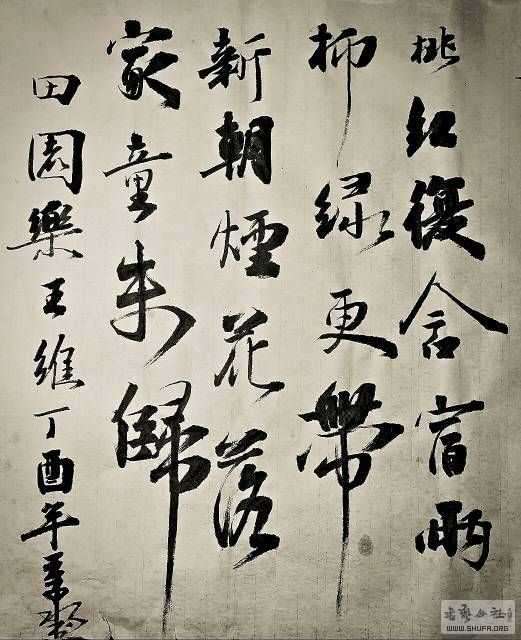 桃红復含宿雨
柳绿更帶
新朝煙花落
家童未歸
田園樂王維丁酉年
书艺公社
WWW.SHUFA.ORG